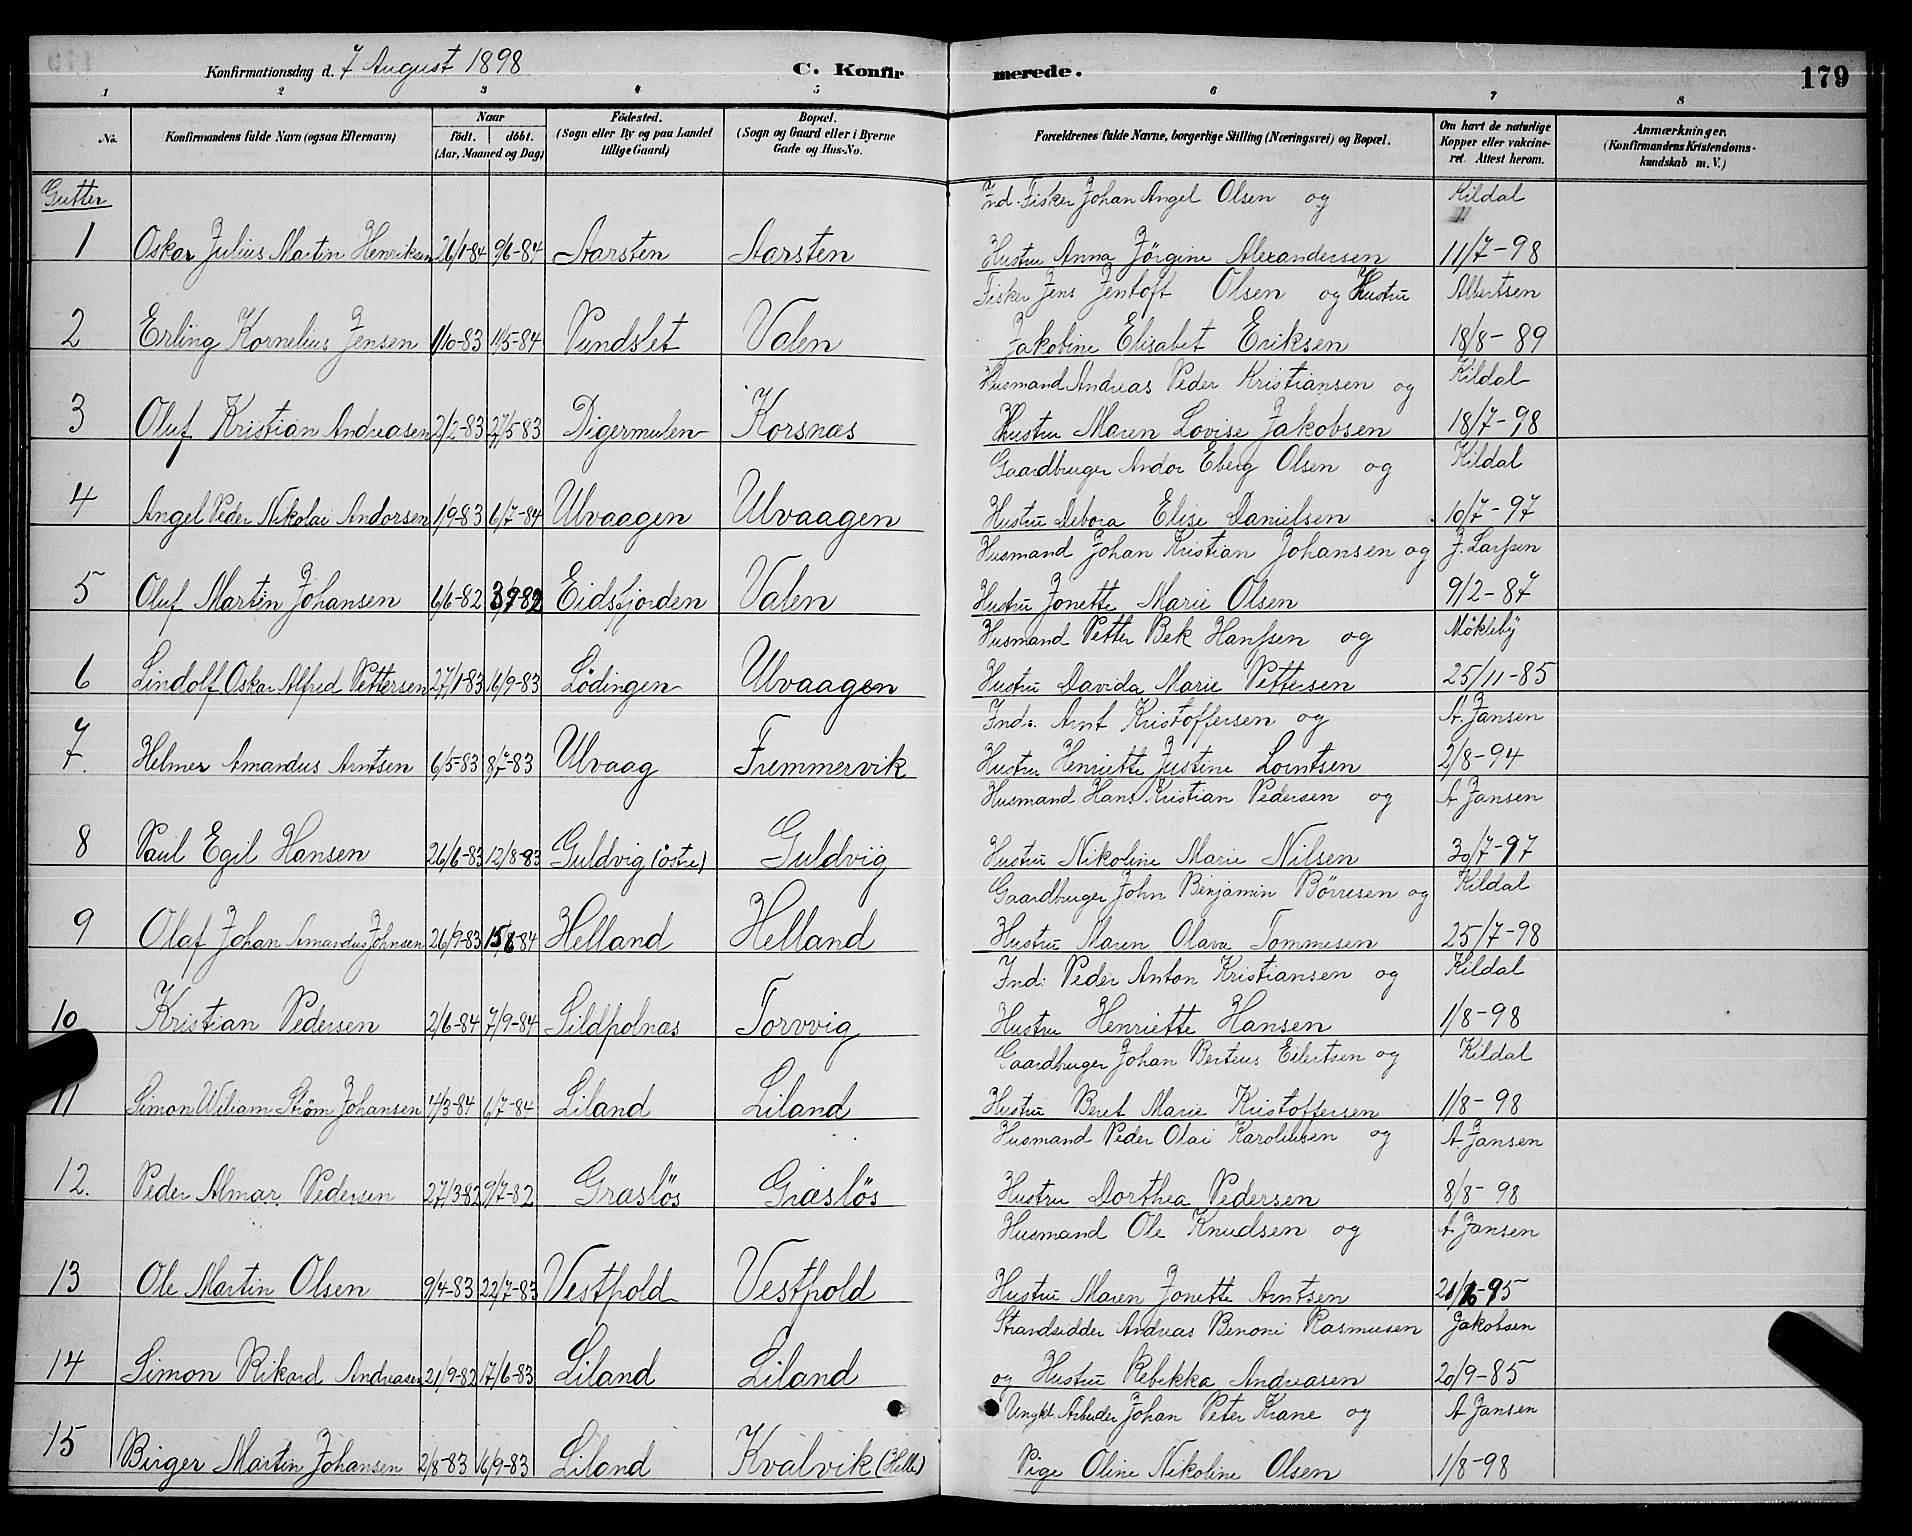 Konfirmationsdag d. 7 August 1898 C. Konfirmerede. 179
1 2 3 4 5 6 7 8
No. Konfirmandens fulde Navn (ogsaa Efternavn) Naar født. døbt. (Aar, Maaned og Dag) Fødested. (Sogn eller By og paa Landet tillige Gaard) Bopæl. (Sogn og Gaard eller i Byerne Gade og Hus-No. Forældrenes fulde Navne, borgerlige Stilling (Næringsvei) og Bopæl. Om havt de naturlige Kopper eller vakcineret. Attest herom. Anmærkninger. (Konfirmandens Kristendomskundskab m. V.)
Gutter
Ind. Fisker Johan Angel Olsen og Kildal
1 Oskar Julius Martin Henriksen 26/1-84 9/6-84 Aarsten Aarsten Hustru Anna Jörgine Alexandersen 11/7-98
Fisker Jens Jentoft Olsen og Hustru Albertsen
2 Erling Kornelius Jensen 1/10-83 11/5-84 Pundslet Valen Jakobine Elisabet Eriksen 18/8-89
Husmand Andreas Peder Kristiansen og Kildal
3 Oluf Kristian Andreasen 2/2-83 27/5-83 Digermulen Korsnæs Hustru Maren Lovise Jakobsen 18/7-98
Gaardbruger Andor Eberg Olsen og Kildal
4 Angel Peder Nikolai Andorsen 1/9-83 6/7-84 Ulvaagen Ulvaagen Hustru Debora Elise Danielsen 10/7-97
Husmand Johan Kristian Johansen og J. Larssen
5 Oluf Martin Johansen 6/6-82 3/9-82 Eidsfjorden Valen Hustru Jonette Marie Olsen 9/2-87
Husmand Petter Bek Hanssen og Mökleby
6 Lindolf Oskar Alfred Pettersen 27/1-83 16/9-83 Lödingen Ulvaagen Hustru Davida Marie Pettersen 25/11-85
Ind. Arnt Kristoffersen og A Jansen
7. Helmer Amandus Arntsen 6/5-83 8/7-83 Ulvaag Fremmervik Hustru Henriette Justine Lorntsen 2/8-94
Husmand Hans Kristian Pedersen og A Jansen
8 Paul Egil Hansen 26/6-83 12/8-83 Guldvig (östre) Guldvig Hustru Nikoline Marie Nilsen 30/7-97
Gaardbruger John Benjamin Börresen og Kildal
9 Olaf Johan Amandus Johnsen 26/9-83 15/6-84 Helland Helland Hustru Maren Olava Tommesen 25/7-98
Ind: Peder Anton Kristiansen og Kildal
10 Kristian Pedersen 2/6-84 7/9-84 Sildpolnæs Torvvig Hustru Henriette Hansen 1/8-98
Gaardbruger Johan Berteus Eilertsen og Kildal
11 Simon Wiliam Strøm Johansen 4/3-84 6/7-84 Liland Liland Hustru Beret Marie Kristoffersen 1/8-98
Husmand Peder Olai Karoliusen og A. Jansen
12. Peder Almar Pedersen 27/3-82 9/7-82 Græslös Græslös Hustru Dorthea Pedersen 8/8-98
Husmand Ole Knudsen og A Jansen
13 Ole Martin Olsen 9/4-83 22/7-83 Vestpold Vestpold Hustru Maren Jonette Arntsen
Strandsidder Andreas Benoni Rasmusen Jakobsen
14 Simon Rikard Andreasen 21/9-82 17/6-83 Liland Liland og Hustru Rebekka Andreasen 20/9-85
Ungkt. Arbeider Johan Peter Krane og A Jansen
15 Birger Martin Johansen 2/8-83 16/9-83 Liland Kvalvik (Helle) Pige Oline Nikoline Olsen 1/8-98